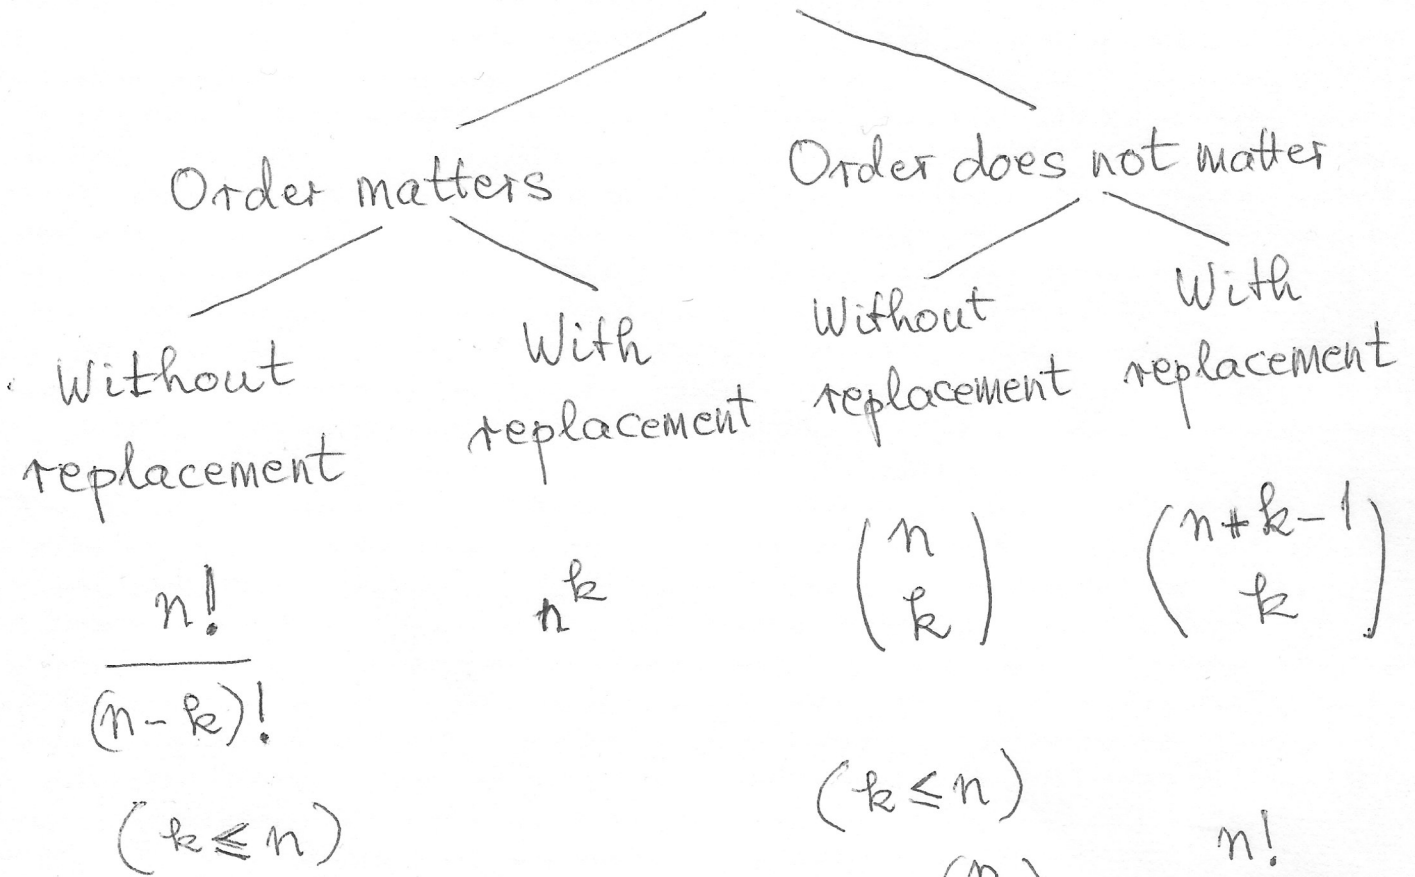 Order matters
Order does not matter
Without
replacement
With
replacement
Without
replacement
With
replacement
n!
(n-k)!
(k≤n)
n^k
(n
k)
(k≤n)
(n+k-1
k)
n!